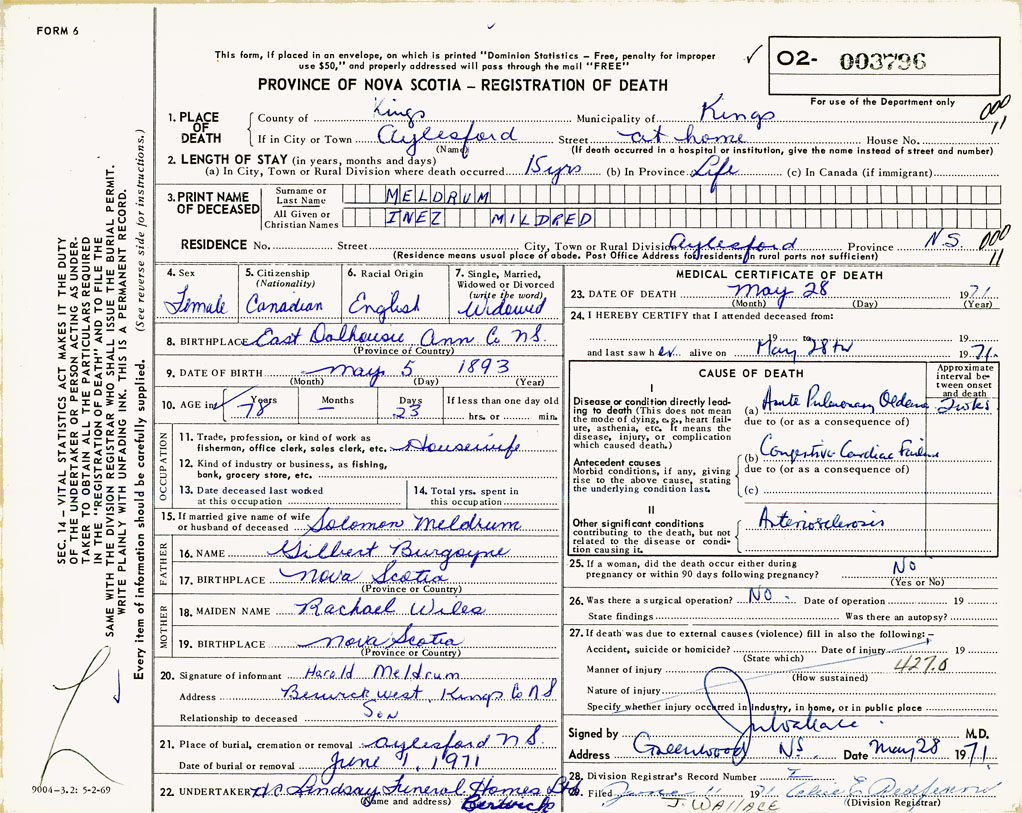 FORM 6
This form, if placed in an envelope, on which is printed "Dominion Statistics – Free, penalty for improper
use $50," and properly addressed will pass through the mail "FREE"
O2- 003796
For use of the Department only
PROVINCE OF NOVA SCOTIA – REGISTRATION OF DEATH
1. PLACE OF DEATH
County of Kings Municipality of Kings 000 11
If in City or Town Aylesford Street at home House No.
(Name) (If death occurred in a hospital or institution, give the name instead of street and number)
2. LENGTH OF STAY (in years, months and days)
(a) In City, Town or Rural Division where death occurred 15 yrs (b) In Province Life (c) In Canada (if immigrant)
3. PRINT NAME OF DECEASED
Surname or Last Name MELDRUM
All Given or Christian Names INEZ MILDRED
RESIDENCE No. Street City, Town or Rural Division Aylesford Province N.S. 000 11
(Residence means usual place of abode. Post Office Address for residents in rural parts not sufficient)
4. Sex Female
5. Citizenship (Nationality) Canadian
6. Racial Origin English
7. Single, Married, Widowed or Divorced (write the word) Widowed
8. BIRTHPLACE East Dalhousie Ann Co NS.
(Province of Country)
9. DATE OF BIRTH May 5 1893
(Month) (Day) (Year)
10. AGE in Years 78 Months – Days 23 If less than one day old hrs. or min.
OCCUPATION
11. Trade, profession, or kind of work as
fisherman, office clerk, sales clerk, etc. Housewife
12. Kind of industry or business, as fishing,
bank, grocery store, etc.
13. Date deceased last worked
at this occupation
14. Total yrs. spent in
this occupation
15. If married give name of wife
or husband of deceased Solomon Meldrum
FATHER
16. NAME Gilbert Burgoyne
17. BIRTHPLACE Nova Scotia
(Province or Country)
MOTHER
18. MAIDEN NAME Rachael Wiles
19. BIRTHPLACE Nova Scotia
(Province or Country)
20. Signature of informant Harold Meldrum
Address Berwick West, Kings Co NS
Relationship to deceased Son
21. Place of burial, cremation or removal Aylesford N S.
Date of burial or removal June 1, 1971
22. UNDERTAKER Lindsay Funeral Homes Ltd
(Name and address) Berwick
MEDICAL CERTIFICATE OF DEATH
23. DATE OF DEATH May 28 1971
(Month) (Day) (Year)
24. I HEREBY CERTIFY that I attended deceased from:
19
and last saw her alive on May 28th 1971.
CAUSE OF DEATH
Approximate interval between onset and death
I
Disease or condition directly lead-
ing to death (This does not mean
the mode of dying, e.g., heart fail-
ure, asthenia, etc. It means the
disease, injury, or complication
which caused death.)
(a) Acute Pulmonary Oedema 2 wks
due to (or as a consequence of)
Antecedent causes
Morbid conditions, if any, giving
rise to the above cause, stating
the underlying condition last.
(b) Congestive Cardiac Failure
due to (or as a consequence of)
(c)
II
Other significant conditions
contributing to the death, but not
related to the disease or condi-
tion causing it.
Arteriosclerosis
25. If a woman, did the death occur either during
pregnancy or within 90 days following pregnancy? No
(Yes or No)
26. Was there a surgical operation? NO. Date of operation 19
State findings Was there an autopsy?
27. If death was due to external causes (violence) fill in also the following:–
Accident, suicide or homicide? Date of injury 19
(State which)
Manner of injury 427.0
(How sustained)
Nature of injury
Specify whether injury occurred in industry, in home, or in public place
Signed by J Wallace M.D.
Address Greenwood NS. Date May 28 1971.
28. Division Registrar's Record Number
29. Filed June 11 1971
J. WALLACE (Division Registrar)
SEC. 14 – VITAL STATISTICS ACT MAKES IT THE DUTY
OF THE UNDERTAKER OR PERSON ACTING AS UNDER-
TAKER TO OBTAIN ALL THE PARTICULARS REQUIRED
IN THE "REGISTRATION OF DEATH" AND TO FILE THE
SAME WITH THE DIVISION REGISTRAR WHO SHALL ISSUE THE BURIAL PERMIT.
WRITE PLAINLY WITH UNFADING INK. THIS IS A PERMANENT RECORD.
Every item of information should be carefully supplied. (See reverse side for instructions.)
9004-3.2: 5-2-69